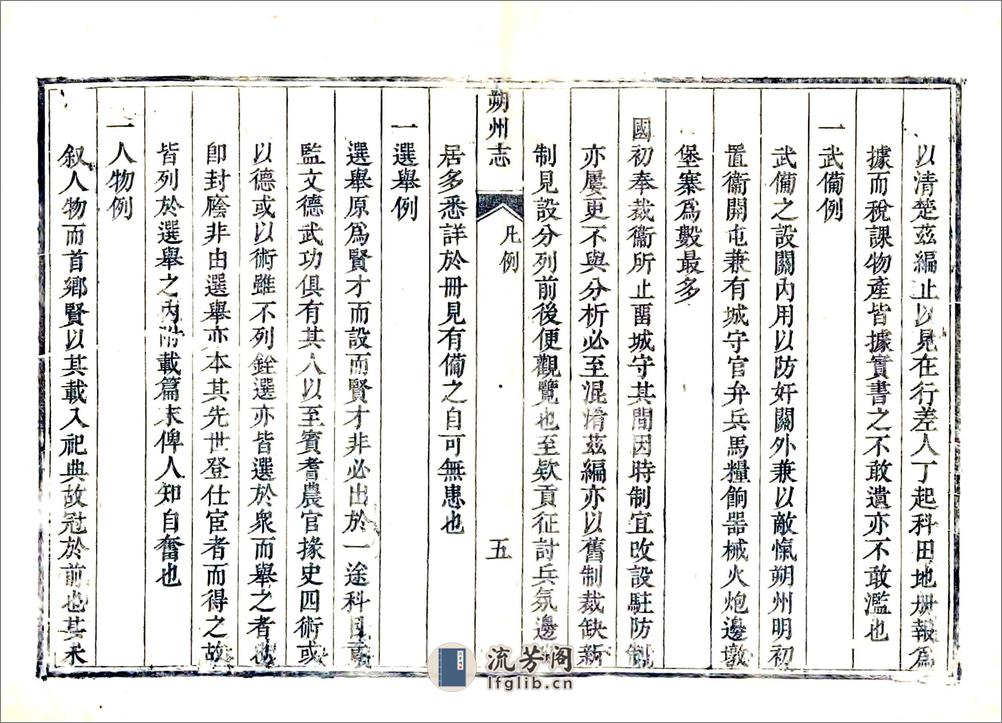 以清楚茲編止以見在行差人丁起科田地册報爲
據而稅課物產皆據實書之不敢遺亦不敢濫也
一武備例
武備之設關內用以防奸關外兼以敵愾朔州明初
置衞開屯兼有城守官弁兵馬糧餉器械火炮邊墩
堡寨爲數最多
國初奉裁衞所止畱城守其間因時制宜改設駐防制
亦屢更不與分析必至混淆茲編亦以舊制裁缺新
制見設分列前後便觀覽也至欵貢征討兵氛邊
朔州志
凡例
五
居多悉詳於冊見有備之自可無患也
一選舉例
選舉原爲賢才而設而賢才非必出於一途科目貢
監文德武功俱有其人以至賓耆農官掾史四術或
以德或以術雖不列銓選亦皆選於衆而舉之者也
卽封廕非由選舉亦本其先世登仕宦者而得之故
皆列於選舉之內附載篇末俾人知自奮也
一人物例
叙人物而首鄉賢以其載入祀典故冠於前也其未
流芳阁
lfglib.cn